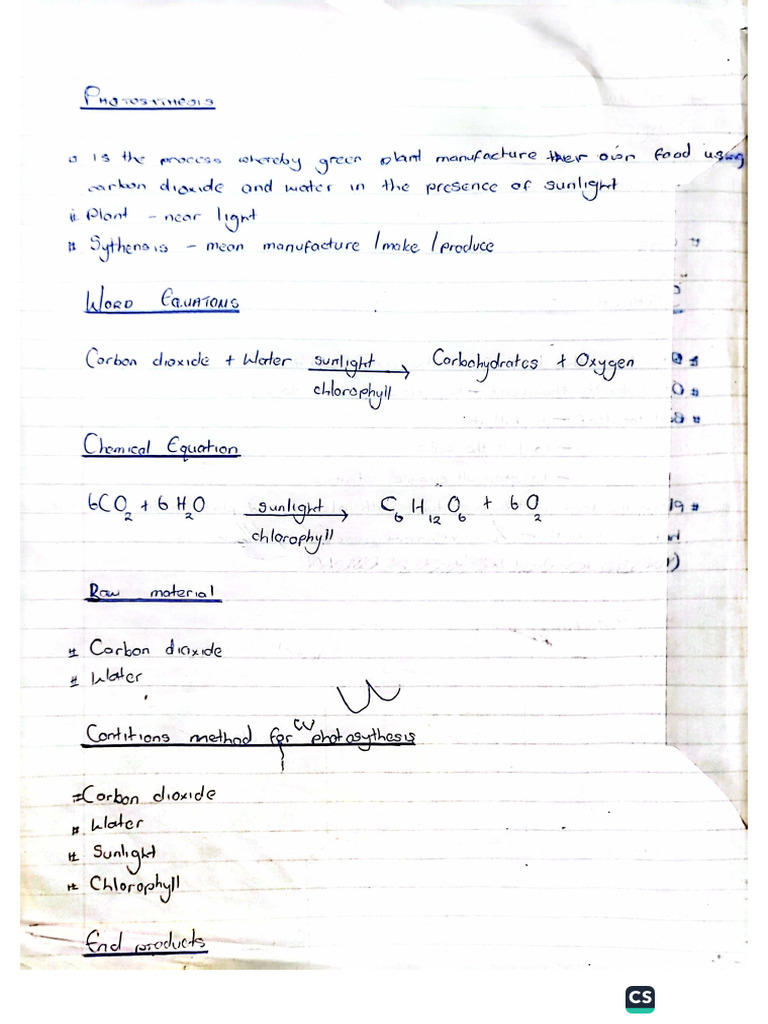 PHOTOSYTHESIS
is the process whereby green plant manufacture their own food using
carbon dioxide and water in the presence of sunlight
Plant - near light
Sythensis - mean manufacture / make / produce
WORD EQUATIONS
Carbon dioxide + Water sunlight Carbohydrates + Oxygen
chlorophyll
Chemical Equation
6CO2 + 6H2O sunlight → C6H12O6 + 6O2
chlorophyll
Raw material
Carbon dioxide
Water
Contitions method for photosythesis
Carbon dioxide
Water
Sunlight
Chlorophyll
End products
CS